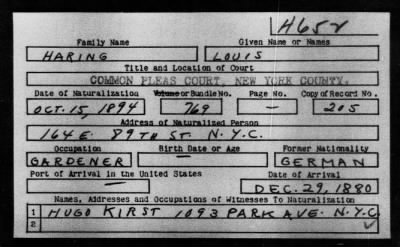 H652
Family Name Given Name or Names
HARING LOUIS
Title and Location of Court
COMMON PLEAS COURT, NEW YORK COUNTY.
Date of Naturalization Volume or Bundle No. Page No. Copy of Record No.
OCT. 15, 1894 769 — 205
Address of Naturalized Person
164 E. 89TH ST. N.Y.C.
Occupation Birth Date or Age Former Nationality
GARDENER — GERMAN
Port of Arrival in the United States Date of Arrival
— DEC. 29, 1880
Names, Addresses and Occupations of Witnesses To Naturalization
1 HUGO KIRST 1093 PARK AVE. N.Y.C
2